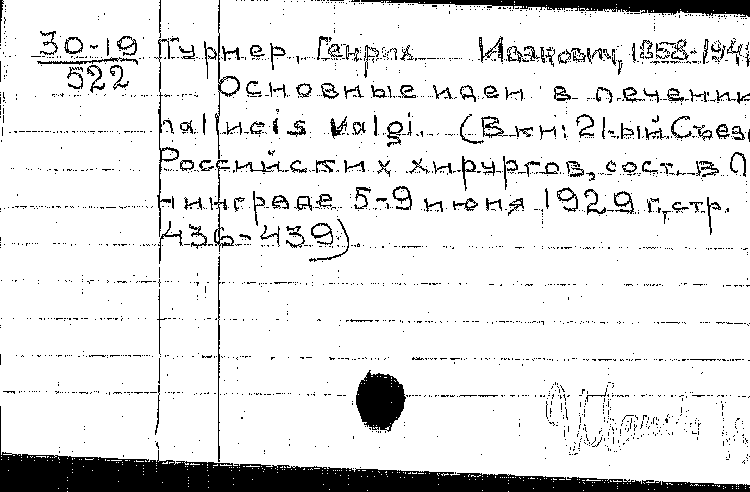 30-19 Турнер, Генрих Иванович, 1858-194
522 Основные идеи в лечении
hallucis valgi. (В кн: 21-ый Съезд
Российских хирургов, сост. в Л
нинграде 5-9 июня 1929 г, стр.
436-439).